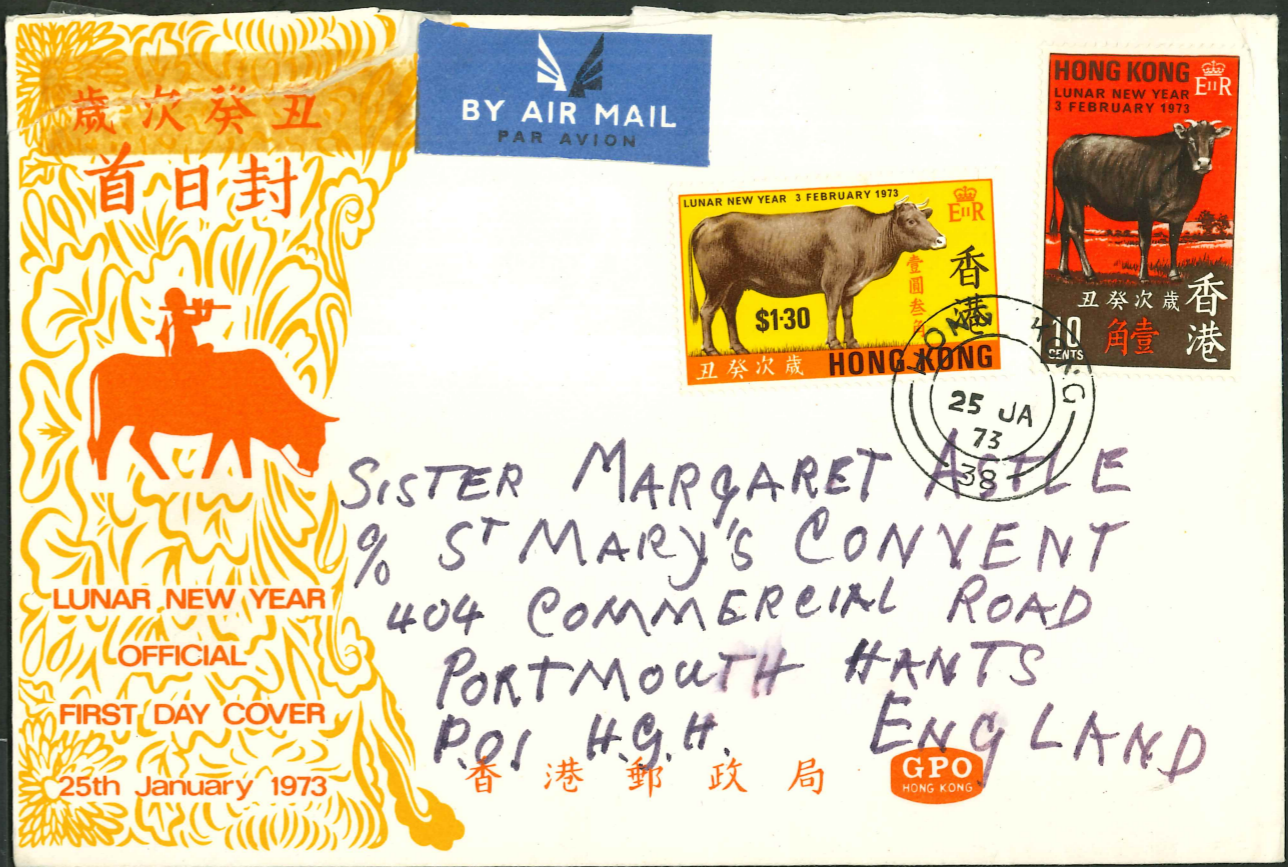 歲次癸丑
首日封
LUNAR NEW YEAR
OFFICIAL
FIRST DAY COVER
25th January 1973
BY AIR MAIL
PAR AVION
LUNAR NEW YEAR 3 FEBRUARY 1973
EIIR
香港
壹圓叁角
$1·30
丑癸次歲
HONG KONG
HONG KONG
EIIR
LUNAR NEW YEAR
3 FEBRUARY 1973
丑癸次歲
香港
10
CENTS
角壹
HONG KONG
25 JA
73
38
SISTER MARGARET ASTLE
c/o ST MARY'S CONVENT
404 COMMERCIAL ROAD
PORTMOUTH HANTS
P.O1 H.G.H. ENGLAND
香港郵政局
GPO
HONG KONG